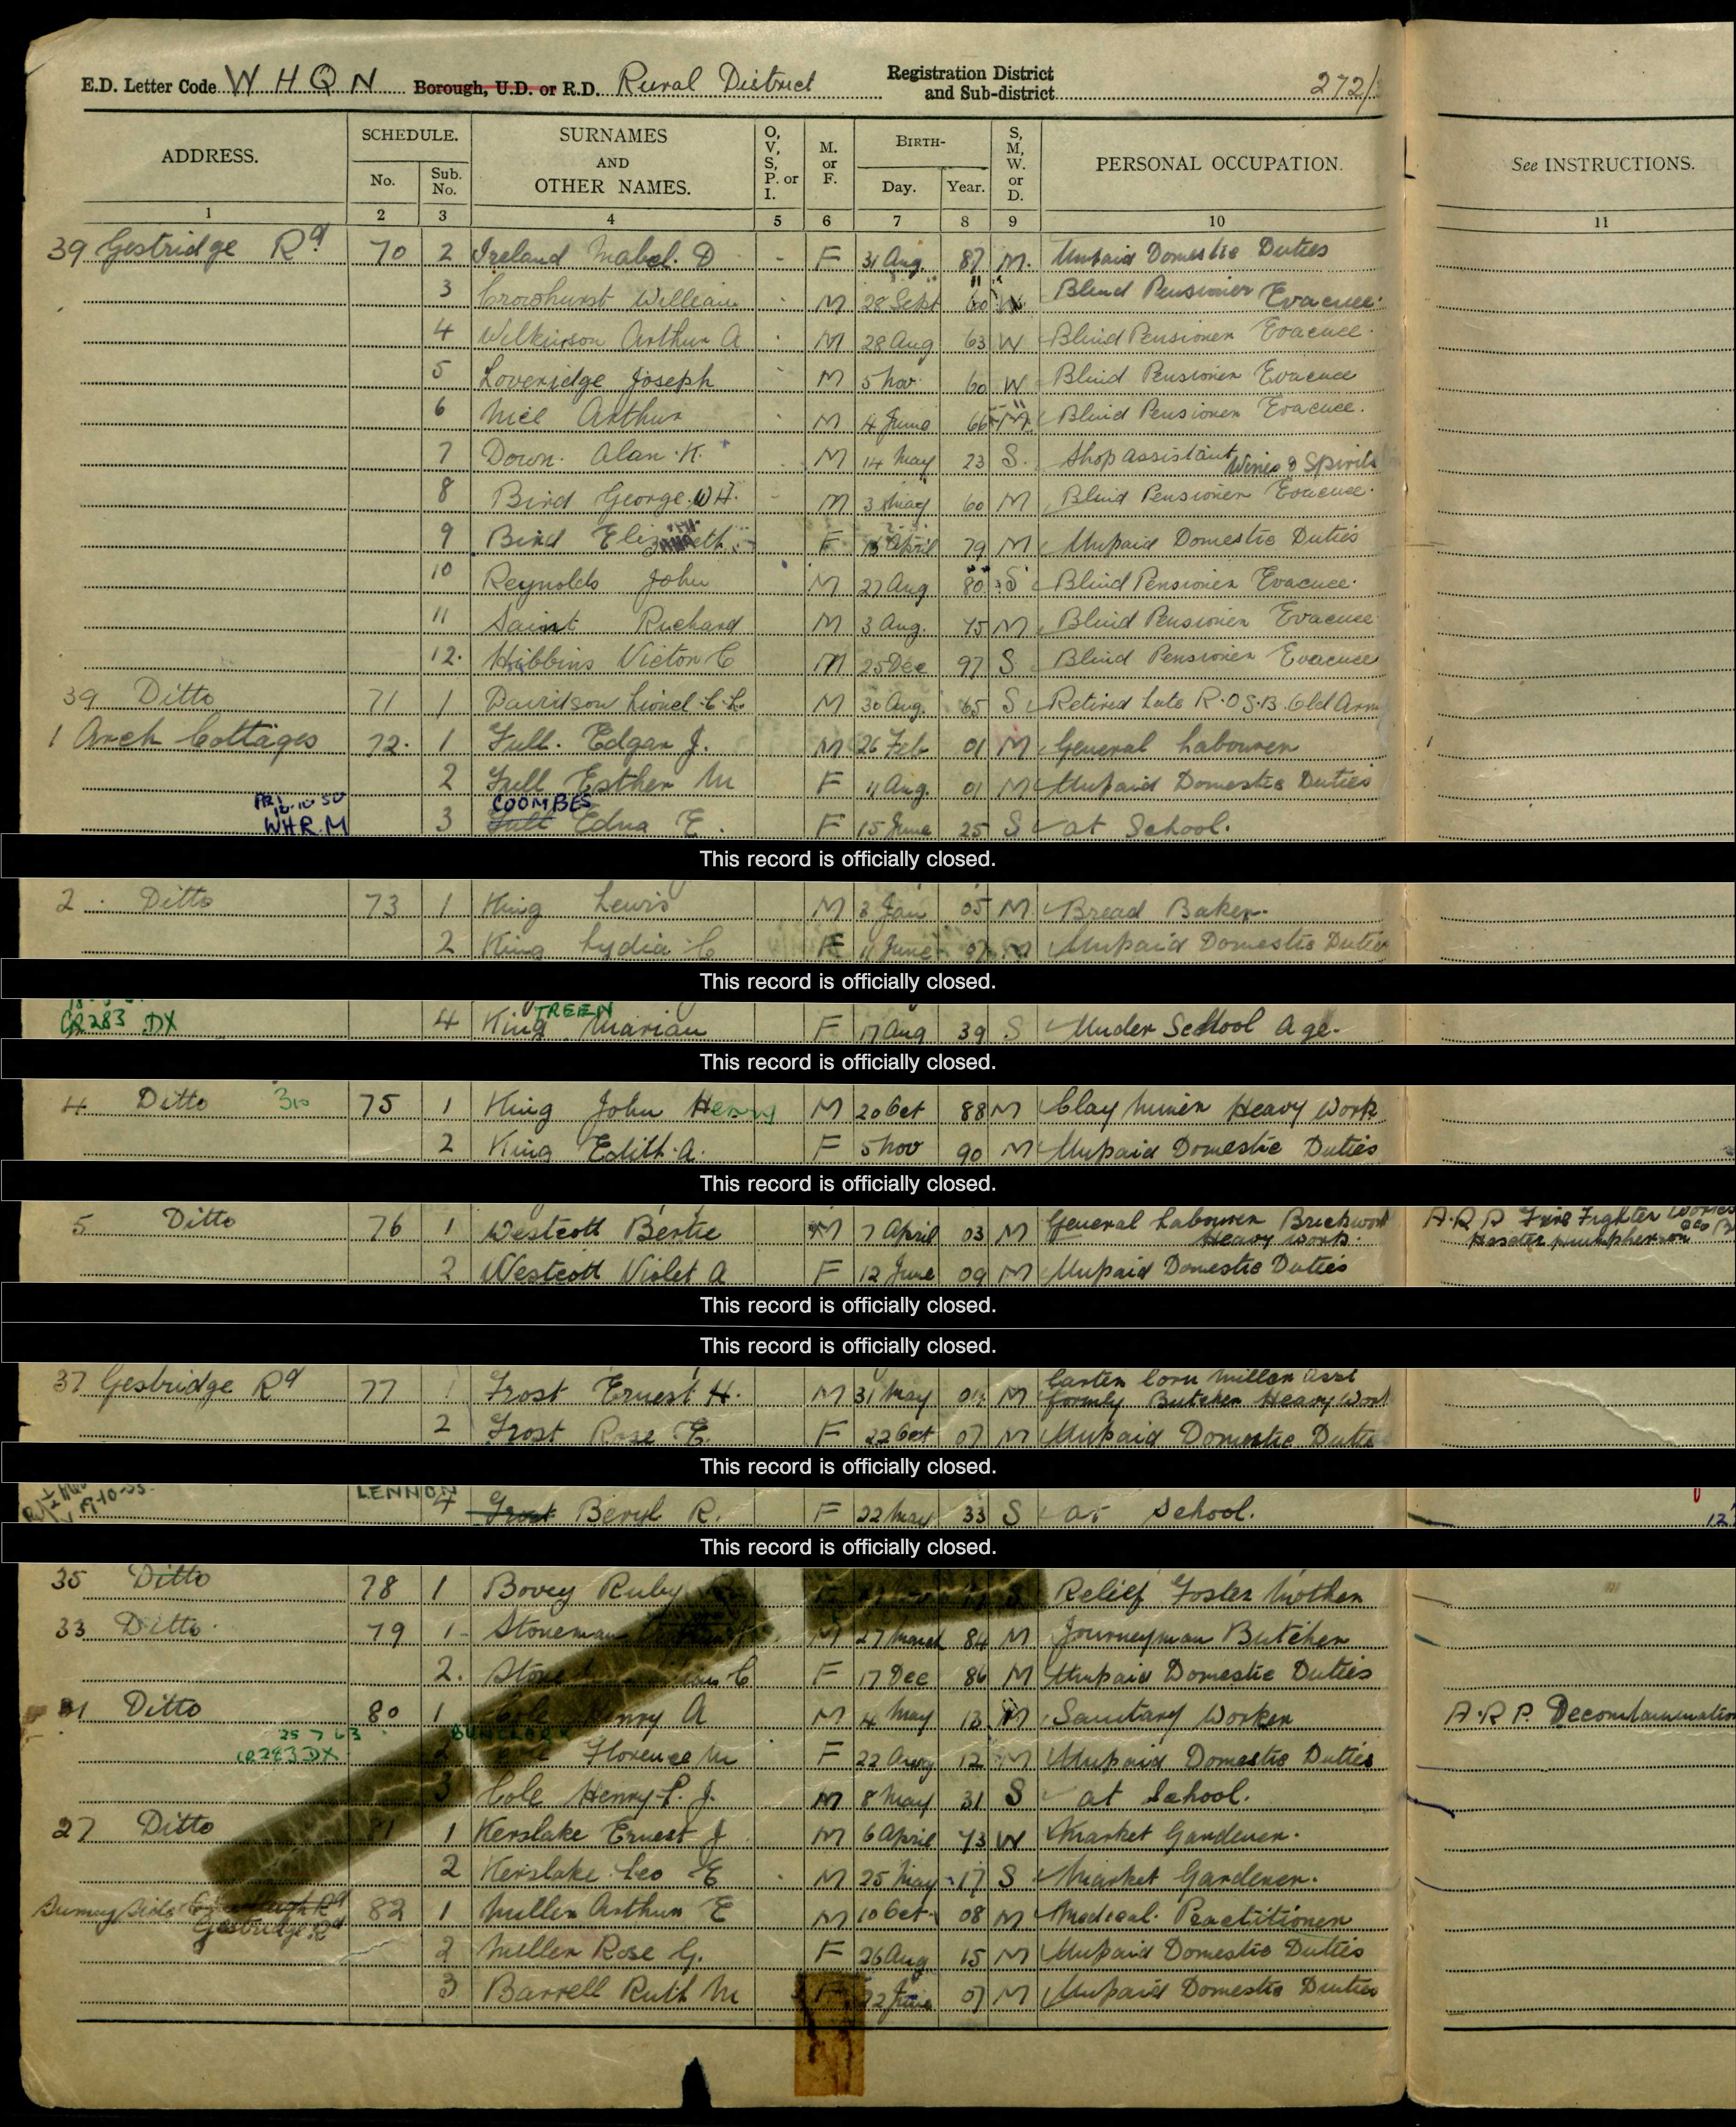 E.D. Letter Code W H Q N Borough, U.D. or R.D. Rural District Registration District and Sub-district 272/
ADDRESS. SCHEDULE. No. Sub. No. SURNAMES AND OTHER NAMES. O, V, S, P. or I. M. or F. BIRTH- Day. Year. S, M, W. or D. PERSONAL OCCUPATION. See INSTRUCTIONS.
1 2 3 4 5 6 7 8 9 10 11
39 Gestridge Rd 70 2 Ireland Mabel. D - F 31 Aug. 87 M. Unpaid Domestic Duties
3 Crowhurst William M 28 Sept 60 Blind Pensioner Evacuee.
4 Wilkinson Arthur A M 28 Aug 63 W Blind Pensioner Evacuee.
5 Loveridge Joseph M 5 Nov 60 W Blind Pensioner Evacuee
6 Arthur M 4 June 66 M. Blind Pensioner Evacuee.
7 Down. Alan. K. M 14 May 23 S. Shop assistant Wines & Spirits
8 Bird George. W H. - M 3 May 60 M Blind Pensioner Evacuee.
9 Bird Elizabeth F April 79 M Unpaid Domestic Duties
10 Reynolds John M 27 Aug 80 S Blind Pensioner Evacuee.
11 Saint Richard M 3 Aug. 75 M Blind Pensioner Evacuee
12. Hibbins Victor C M 25 Dec 97 S Blind Pensioner Evacuee
39 Ditto 71 1 Davidson Lionel. C. L. M 30 Aug. 65 S Retired Late K.O.S.B. Old Arm
1 Arch Cottages 72. 1 Full. Edgar J. M 26 Feb 01 M General Labourer
2 Full Esther M F 11 Aug. 01 M Unpaid Domestic Duties
COOMBES
WHR.M 3 Full Edna E. F 15 June 25 S at School.
This record is officially closed.
2 Ditto 73 1 King Lewis M 3 Jan 05 M Bread Baker.
2 King Lydia C F 11 June 07 M Unpaid Domestic Duties
This record is officially closed.
TREEN
CR283 DX 4 King Marian F 17 Aug 39 S Under School Age.
This record is officially closed.
4 Ditto 75 1 King John Henry M 20 Oct 88 M Clay Miner Heavy Work
2 King Edith. A. F 5 Nov 90 M Unpaid Domestic Duties
This record is officially closed.
5 Ditto 76 1 Westcott Bertie M 7 April 03 M General Labourer Brickwork A.R.P. Fire Fighter Works
Heavy Work.
2 Westcott Violet A F 12 June 09 M Unpaid Domestic Duties
This record is officially closed.
This record is officially closed.
37 Gestridge Rd 77 1 Frost Ernest H. M 31 May M Carter Corn Miller Asst
formly Butcher Heavy Work
2 Frost Rose E. F 22 Oct 07 M Unpaid Domestic Duties
This record is officially closed.
LENNON
4 Frost Beryl R. F 22 May 33 S at School.
This record is officially closed.
35 Ditto 78 1 Bovey Ruby S Relief Foster Mother
33 Ditto 79 1 Stoneman M 27 March 84 M Journeyman Butcher
2. C F 17 Dec 86 M Unpaid Domestic Duties
31 Ditto 80 1 Cole Henry A M 4 May 13 M Sanitary Worker A.R.P. Decontamination
25 7 63
CR283 DX 2 Florence M F 22 Aug 12 M Unpaid Domestic Duties
3 Cole Henry P. J. M 8 May 31 S at School.
27 Ditto 81 1 Kerslake Ernest J M 6 April 73 W Market Gardener.
2 Kerslake Leo E M 25 May 17 S Market Gardener.
Sunny Side 82 1 Miller Arthur E M 10 Oct 08 M Medical Practitioner
Gestridge Rd
2 Miller Rose G. F 26 Aug 15 M Unpaid Domestic Duties
3 Barrell Ruth M F 22 June 07 M Unpaid Domestic Duties